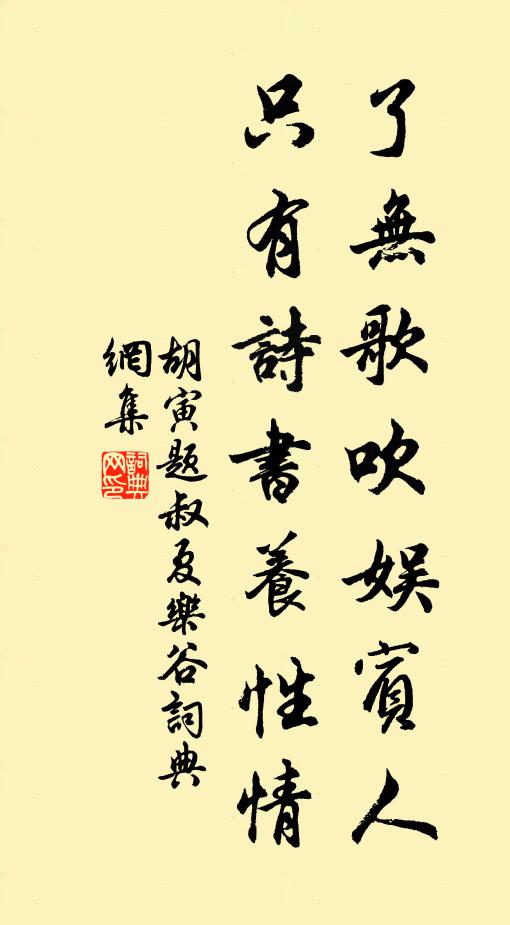 了無歌吹娛賓人
只有詩書養性情
胡寅题叔夏樂谷詞典
網集
詞典
网印